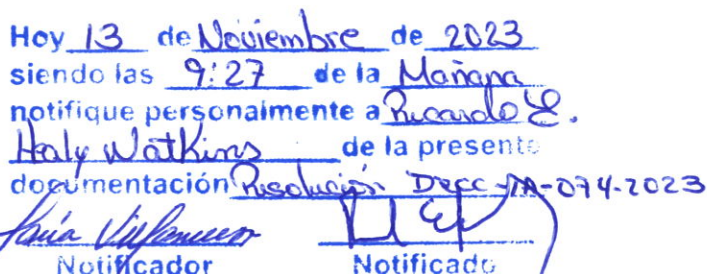 Hoy 13 de Noviembre de 2023
siendo las 9:27 de la Mañana
notifique personalmente a Ricardo E.
Healy Watkins de la presente
documentación Resolución DRCC-IA-074-2023
Notificador Notificado